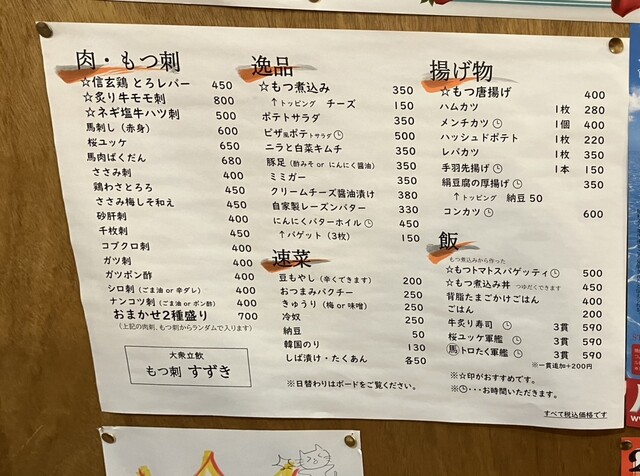 肉・もつ刺
☆信玄鶏 とろレバー 450
☆炙り牛モモ刺 800
☆ネギ塩牛ハツ刺 500
馬刺し(赤身) 600
桜ユッケ 650
馬肉ばくだん 680
ささみ刺 400
鶏わさとろろ 450
ささみ梅しそ和え 450
砂肝刺 400
千枚刺 450
コブクロ刺 400
ガツ刺 400
ガツポン酢 400
シロ刺(ごま油 or 辛ダレ) 400
ナンコツ刺(ごま油 or ポン酢) 400
おまかせ2種盛り 700
(上記の肉刺,もつ刺からランダムで入ります)
大衆立飲
もつ刺 すずき
逸品
☆もつ煮込み 350
↑トッピング チーズ 150
ポテトサラダ 350
ピザ風ポテトサラダ 500
ニラと白菜キムチ 350
豚足(酢みそ or にんにく醤油) 350
ミミガー 350
クリームチーズ醤油漬け 380
自家製レーズンバター 330
にんにくバターホイル 450
↑バゲット(3枚) 150
速菜
豆もやし(辛くできます) 200
おつまみパクチー 250
きゅうり(梅 or 味噌) 250
冷奴 250
納豆 50
韓国のり 130
しば漬け・たくあん 各50
※日替わりはボードをご覧ください。
揚げ物
☆もつ唐揚げ 400
ハムカツ 1枚 280
メンチカツ 1個 400
ハッシュドポテト 1枚 220
レバカツ 1枚 350
手羽先揚げ 1本 150
絹豆腐の厚揚げ 350
↑トッピング 納豆 50
コンカツ 600
飯
もつ煮込から作った
☆もつトマスパゲッティ 500
☆もつ煮込み丼 つゆだくできます 450
背脂たまごかけごはん 400
ごはん 200
牛炙り寿司 3貫 590
桜ユッケ軍艦 3貫 590
馬トロたく軍艦 3貫 590
※一貫追加+200円
※☆印がおすすめです。
※…お時間いただきます。
すべて税込価格です